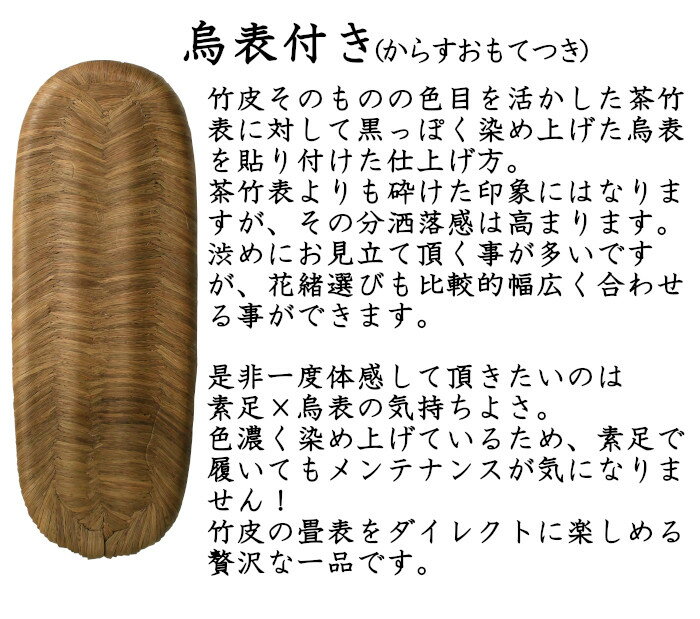 烏表付き(からすおもてつき)
竹皮そのものの色目を活かした茶竹
表に対して黒っぽく染め上げた烏表
を貼り付けた仕上げ方。
茶竹表よりも砕けた印象にはなりま
すが、その分洒落感は高まります。
渋めにお見立て頂く事が多いです
が、花緒選びも比較的幅広く合わせ
る事ができます。
是非一度体感して頂きたいのは
素足×烏表の気持ちよさ。
色濃く染め上げているため、素足で
履いてもメンテナンスが気になりま
せん！
竹皮の畳表をダイレクトに楽しめる
贅沢な一品です。